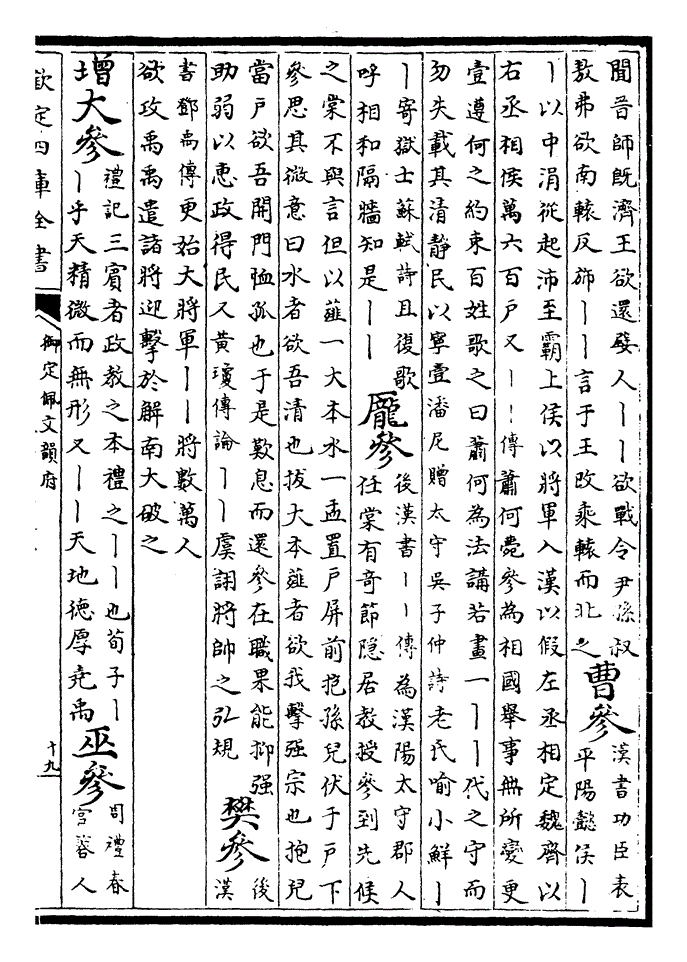 聞晉師既濟王欲還嬖人丨丨欲戰令尹孫叔
敖弗欲南轅反斾丨丨言于王改乘轅而北之
曹參
漢書功臣表
平陽懿侯丨
丨以中涓從起沛至霸上侯以將軍入漢以假左丞相定魏齊以
右丞相侯萬六百戶又丨丨傳蕭何薨參為相國舉事無所變更
壹遵何之約束百姓歌之曰蕭何為法講若畫一丨丨代之守而
勿失載其清静民以寧壹潘尼贈太守吳子仲詩老氏喻小鮮丨
丨寄獄士蘇軾詩且復歌
呼相和隔牆知是丨丨
龎參
後漢書丨丨傳為漢陽太守郡人
任棠有竒節隱居教授參到先候
之棠不與言但以薤一大本水一盂置戶屏前抱孫兒伏于戶下
參思其微意曰水者欲吾清也拔大本薤者欲我擊强宗也抱兒
當戶欲吾開門恤孤也于是歎息而還參在職果能抑强
助弱以惠政得民又黄瓊傳論丨丨虞詡將帥之弘規
樊參
後
漢
書鄧禹傳更始大將軍丨丨將數萬人
欲攻禹禹遣諸將迎擊於解南大破之
增大參
禮記三賓者政教之本禮之丨丨也荀子丨
丨乎天精微而無形又丨丨天地德厚堯禹
巫參
周禮春
官簭人
欽定四庫全書
御定佩文韻府
十九